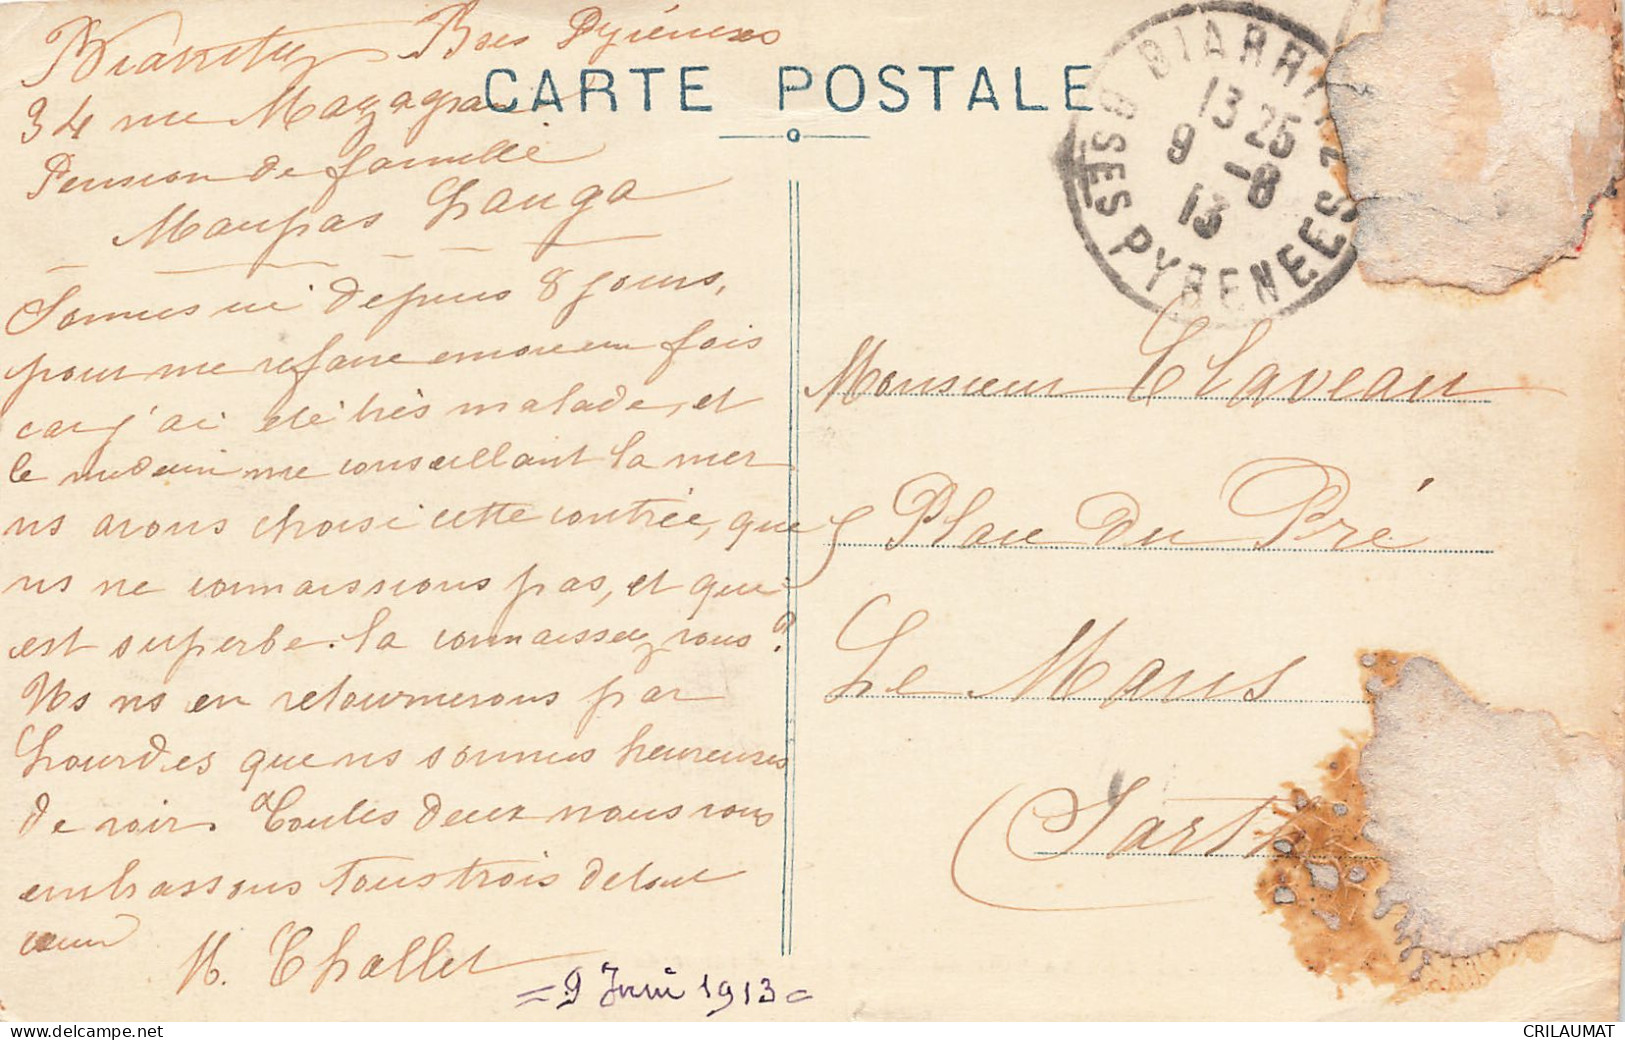 Biarritz Bses Pyrénées
34 rue Mazagran
Pension de famille
Maupas Lhauga
CARTE POSTALE
BIARRITZ
13 25
9 -8
13
BSES PYRENEES
Somes ici depuis 8 jours,
pour me refaire encore une fois
car j'ai été très malade, et
le médecin me conseillant la mer
ns avons choisi cette contrée, que
ns ne connaissions pas, et qui
est superbe. la connaissez vous?
Ns ns en retournerons par
Lourdes que ns sommes heureuses
de voir. Toutes deux nous vous
embrassons tous trois de tout
cœur
M. Challet
= 9 Juin 1913 =
Monsieur Claveau
5 Place du Pré
Le Mans
(Sarthe
www.delcampe.net
CRILAUMAT